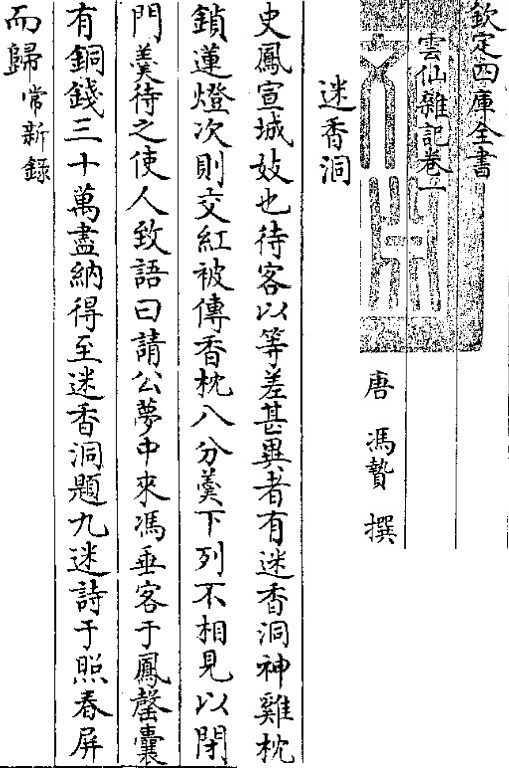 欽定四庫全書
雲仙雜記卷一
唐 馮贄 撰
迷香洞
史鳳宣城妓也待客以等差甚異者有迷香洞神雞枕
鎖蓮燈次則交紅被傳香枕八分羹下列不相見以閉
門羹待之使人致語曰請公夢中來馮垂客于鳳罄囊
有銅錢三十萬盡納得至迷香洞題九迷詩于照春屏
而歸常新錄